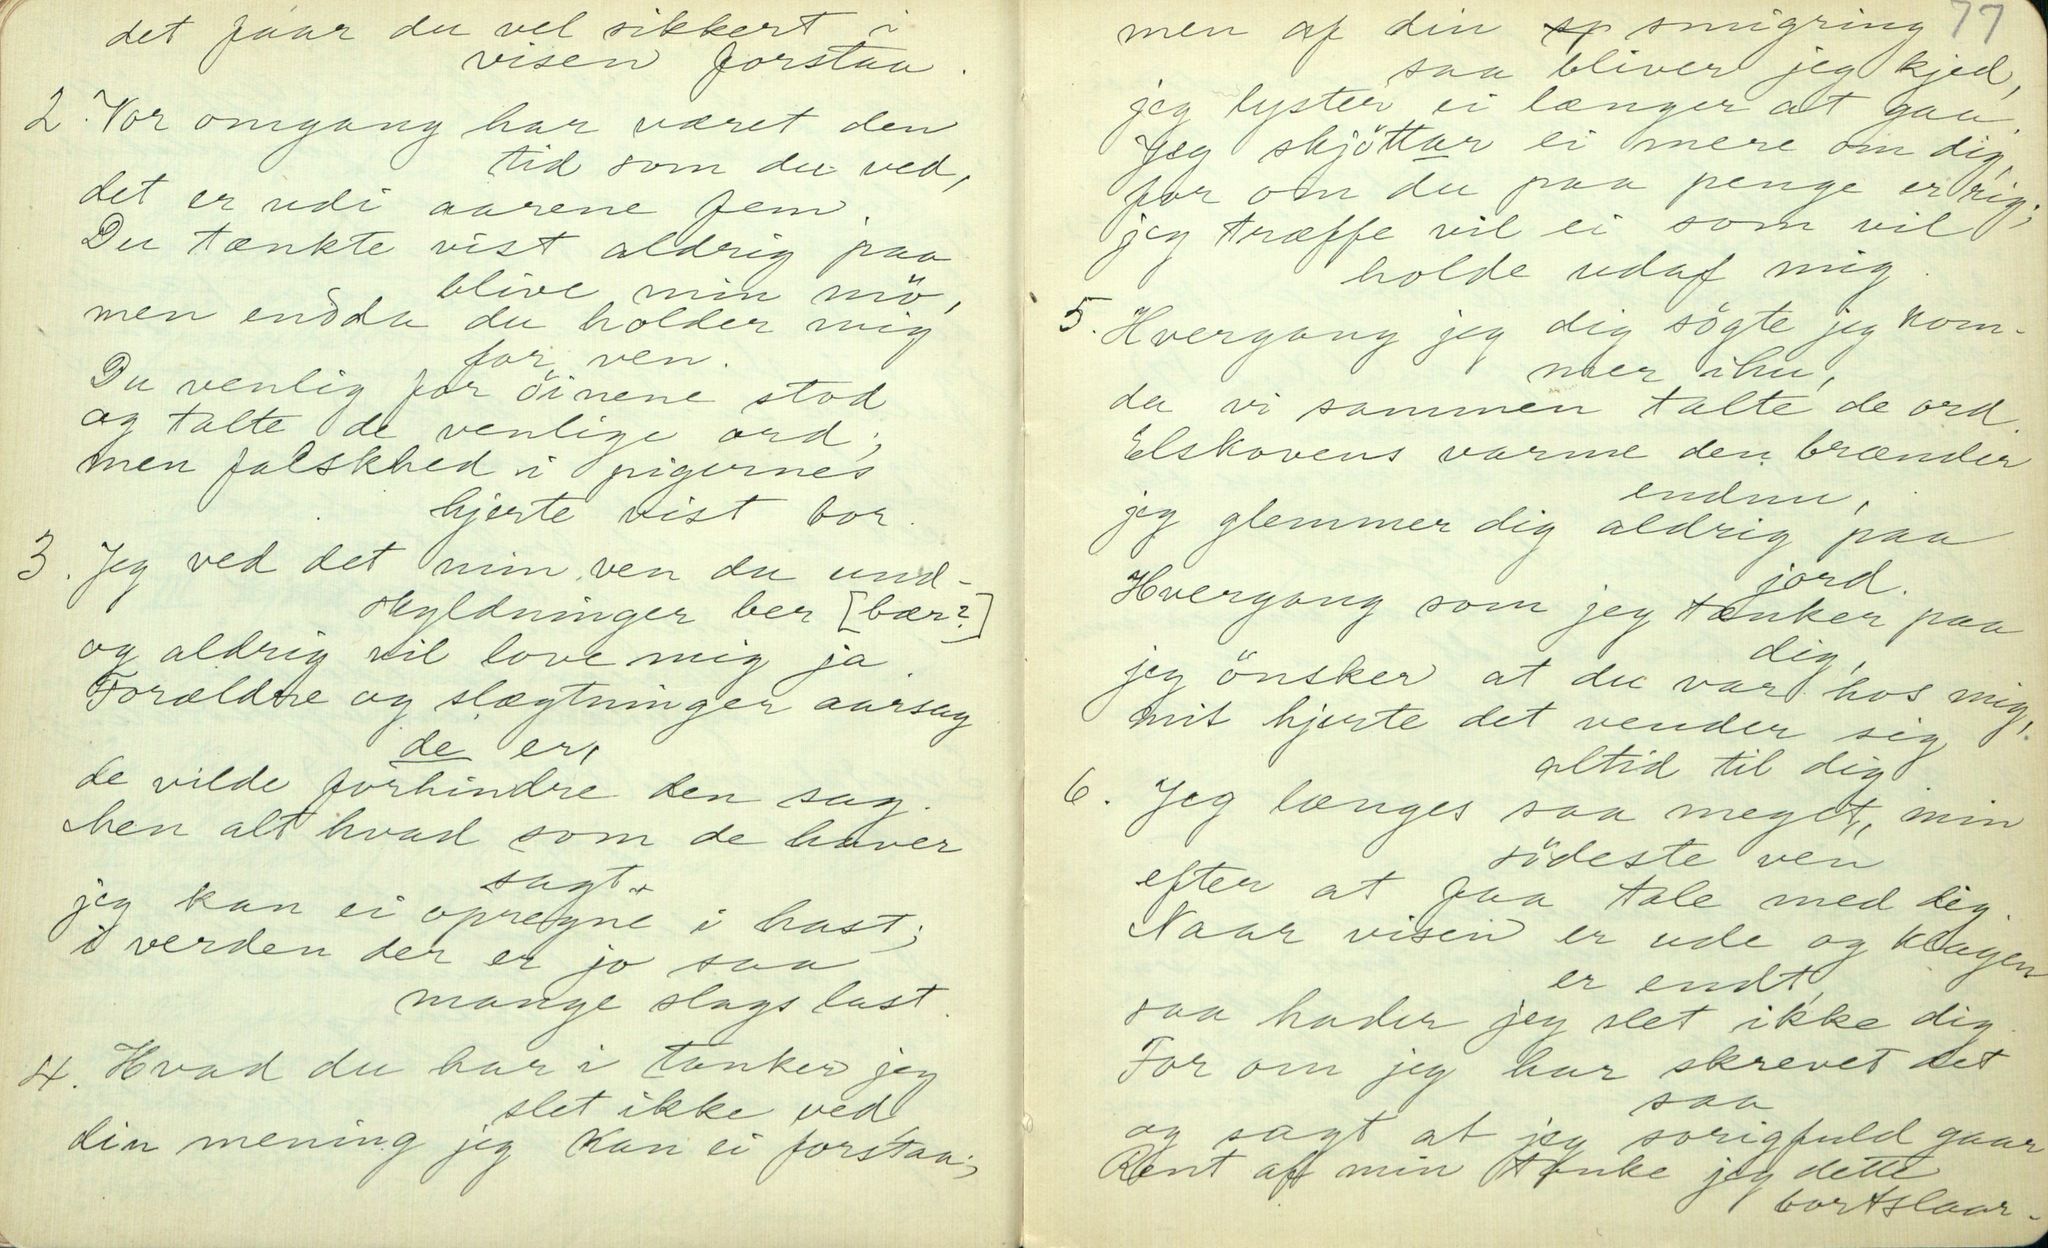 det faar du vel sikkert i
visen forstaa.
2. Vor omgang har været den
tid som du ved,
det er udi aarene fem.
Du tænkte vist aldrig paa
blive min mö,
men endda du holder mig
for ven.
Du venlig for öinene stod
og talte de venlige ord;
men falskhed i pigernes
hjerte vist bor.
3. Jeg ved det min ven du und-
skyldninger ber [bær?]
og aldrig vil love mig ja
Forældre og slægtninger aarsag
de er,
de vilde forhindre den sag.
Men alt hvad som de haver
sagt
jeg kan ei opregne i hast;
i verden der er jo saa
mange slags last.
4. Hvad du har i tanker jeg
slet ikke ved
din mening jeg kan ei forstaa;
77
men af din sp smigring
saa bliver jeg kjed,
jeg lyster ei længer at gaa.
Jeg skjöttar ei mere om dig,
for om du paa penge er rig;
jeg træffe vil ei som vil
holde udaf mig.
5. Hvergang jeg dig sögte jeg kom-
mer ihu,
da vi sammen talte de ord.
Elskovens varme den brænder
endnu,
jeg glemmer dig aldrig paa
jord.
Hvergang som jeg tænker paa
dig,
jeg önsker at du var hos mig,
mit hjerte det vender sig
altid til dig
6. Jeg længes saa meget, min
södeste ven
efter at faa tale med dig.
Naar visen er ude og klagen
er endt,
saa hader jeg slet ikke dig.
For om jeg har skrevet det
saa
og sagt at jeg sorigfuld gaar
Rent af min tanke jeg dette
bortslaar.